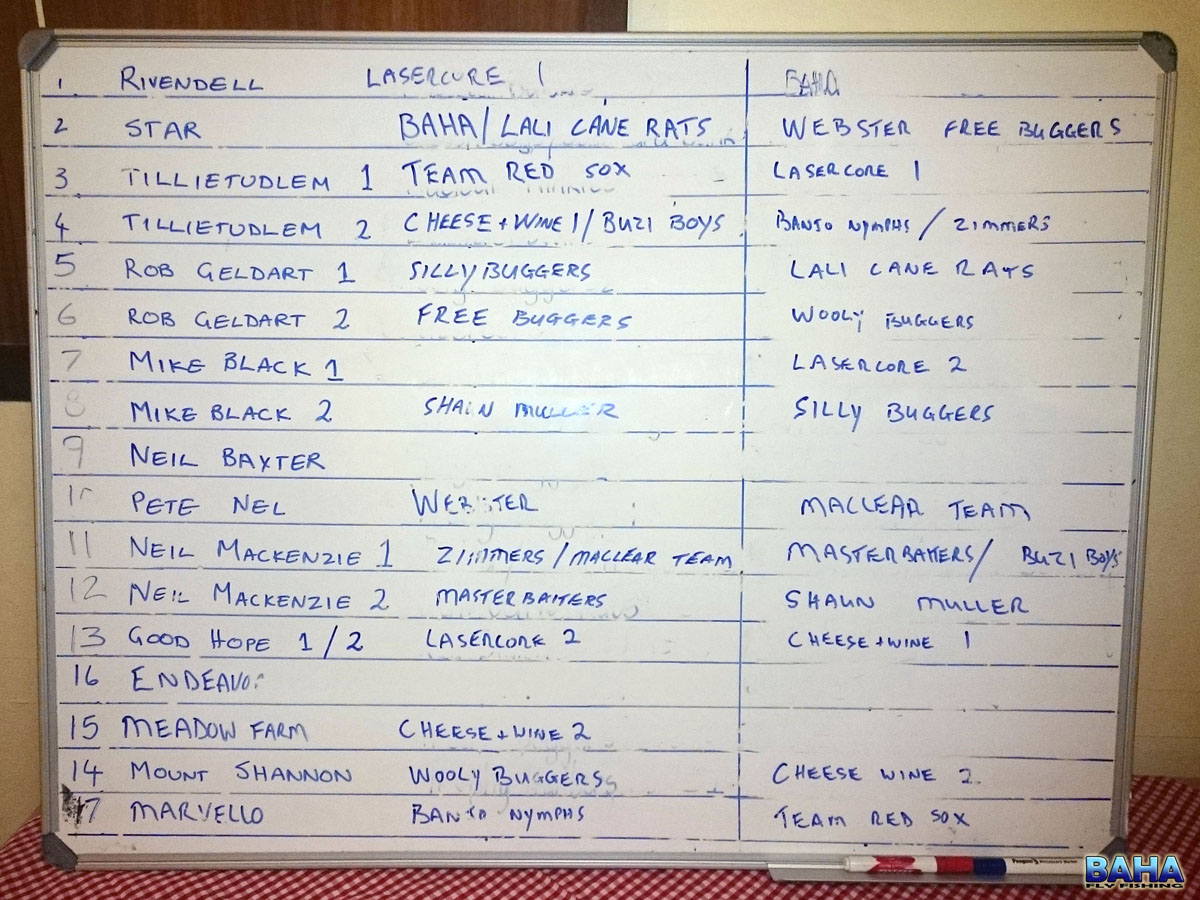 1 RIVENDELL LASERCURE 1 BAHA
2 STAR BAHA/LALI CANE RATS WEBSTER FREE BUGGERS
3 TILLIETUDLEM 1 TEAM RED SOX LASERCORE 1
4 TILLIETUDLEM 2 CHEESE + WINE 1/BUZI BOYS BANJO NYMPHS / ZIMMERS
5 ROB GELDART 1 SILLY BUGGERS LALI CANE RATS
6 ROB GELDART 2 FREE BUGGERS WOOLY BUGGERS
7 MIKE BLACK 1 LASERCORE 2
8 MIKE BLACK 2 SHAUN MULLER SILLY BUGGERS
9 NEIL BAXTER
10 PETE NEL WEBSTER MACLEAR TEAM
11 NEIL MACKENZIE 1 ZIMMERS/MACLEAR TEAM MASTERBAITERS/ BUZI BOYS
12 NEIL MACKENZIE 2 MASTERBAITERS SHAUN MULLER
13 GOOD HOPE 1/2 LASERCORE 2 CHEESE + WINE 1
16 ENDEAVO
15 MEADOW FARM CHEESE + WINE 2
14 MOUNT SHANNON WOOLY BUGGERS CHEESE WINE 2
17 MARVELLO BANJO NYMPHS TEAM RED SOX
BAHA
FLY FISHING